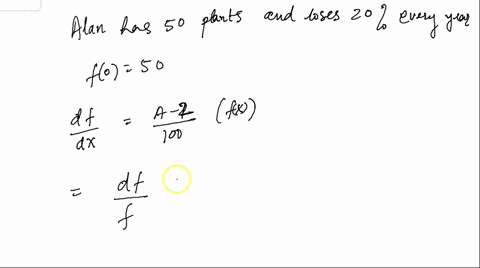 Alan has 50 plants and loses 20% every year
f(0) = 50
df/dx = A-2/100 (f(x))
= df/f